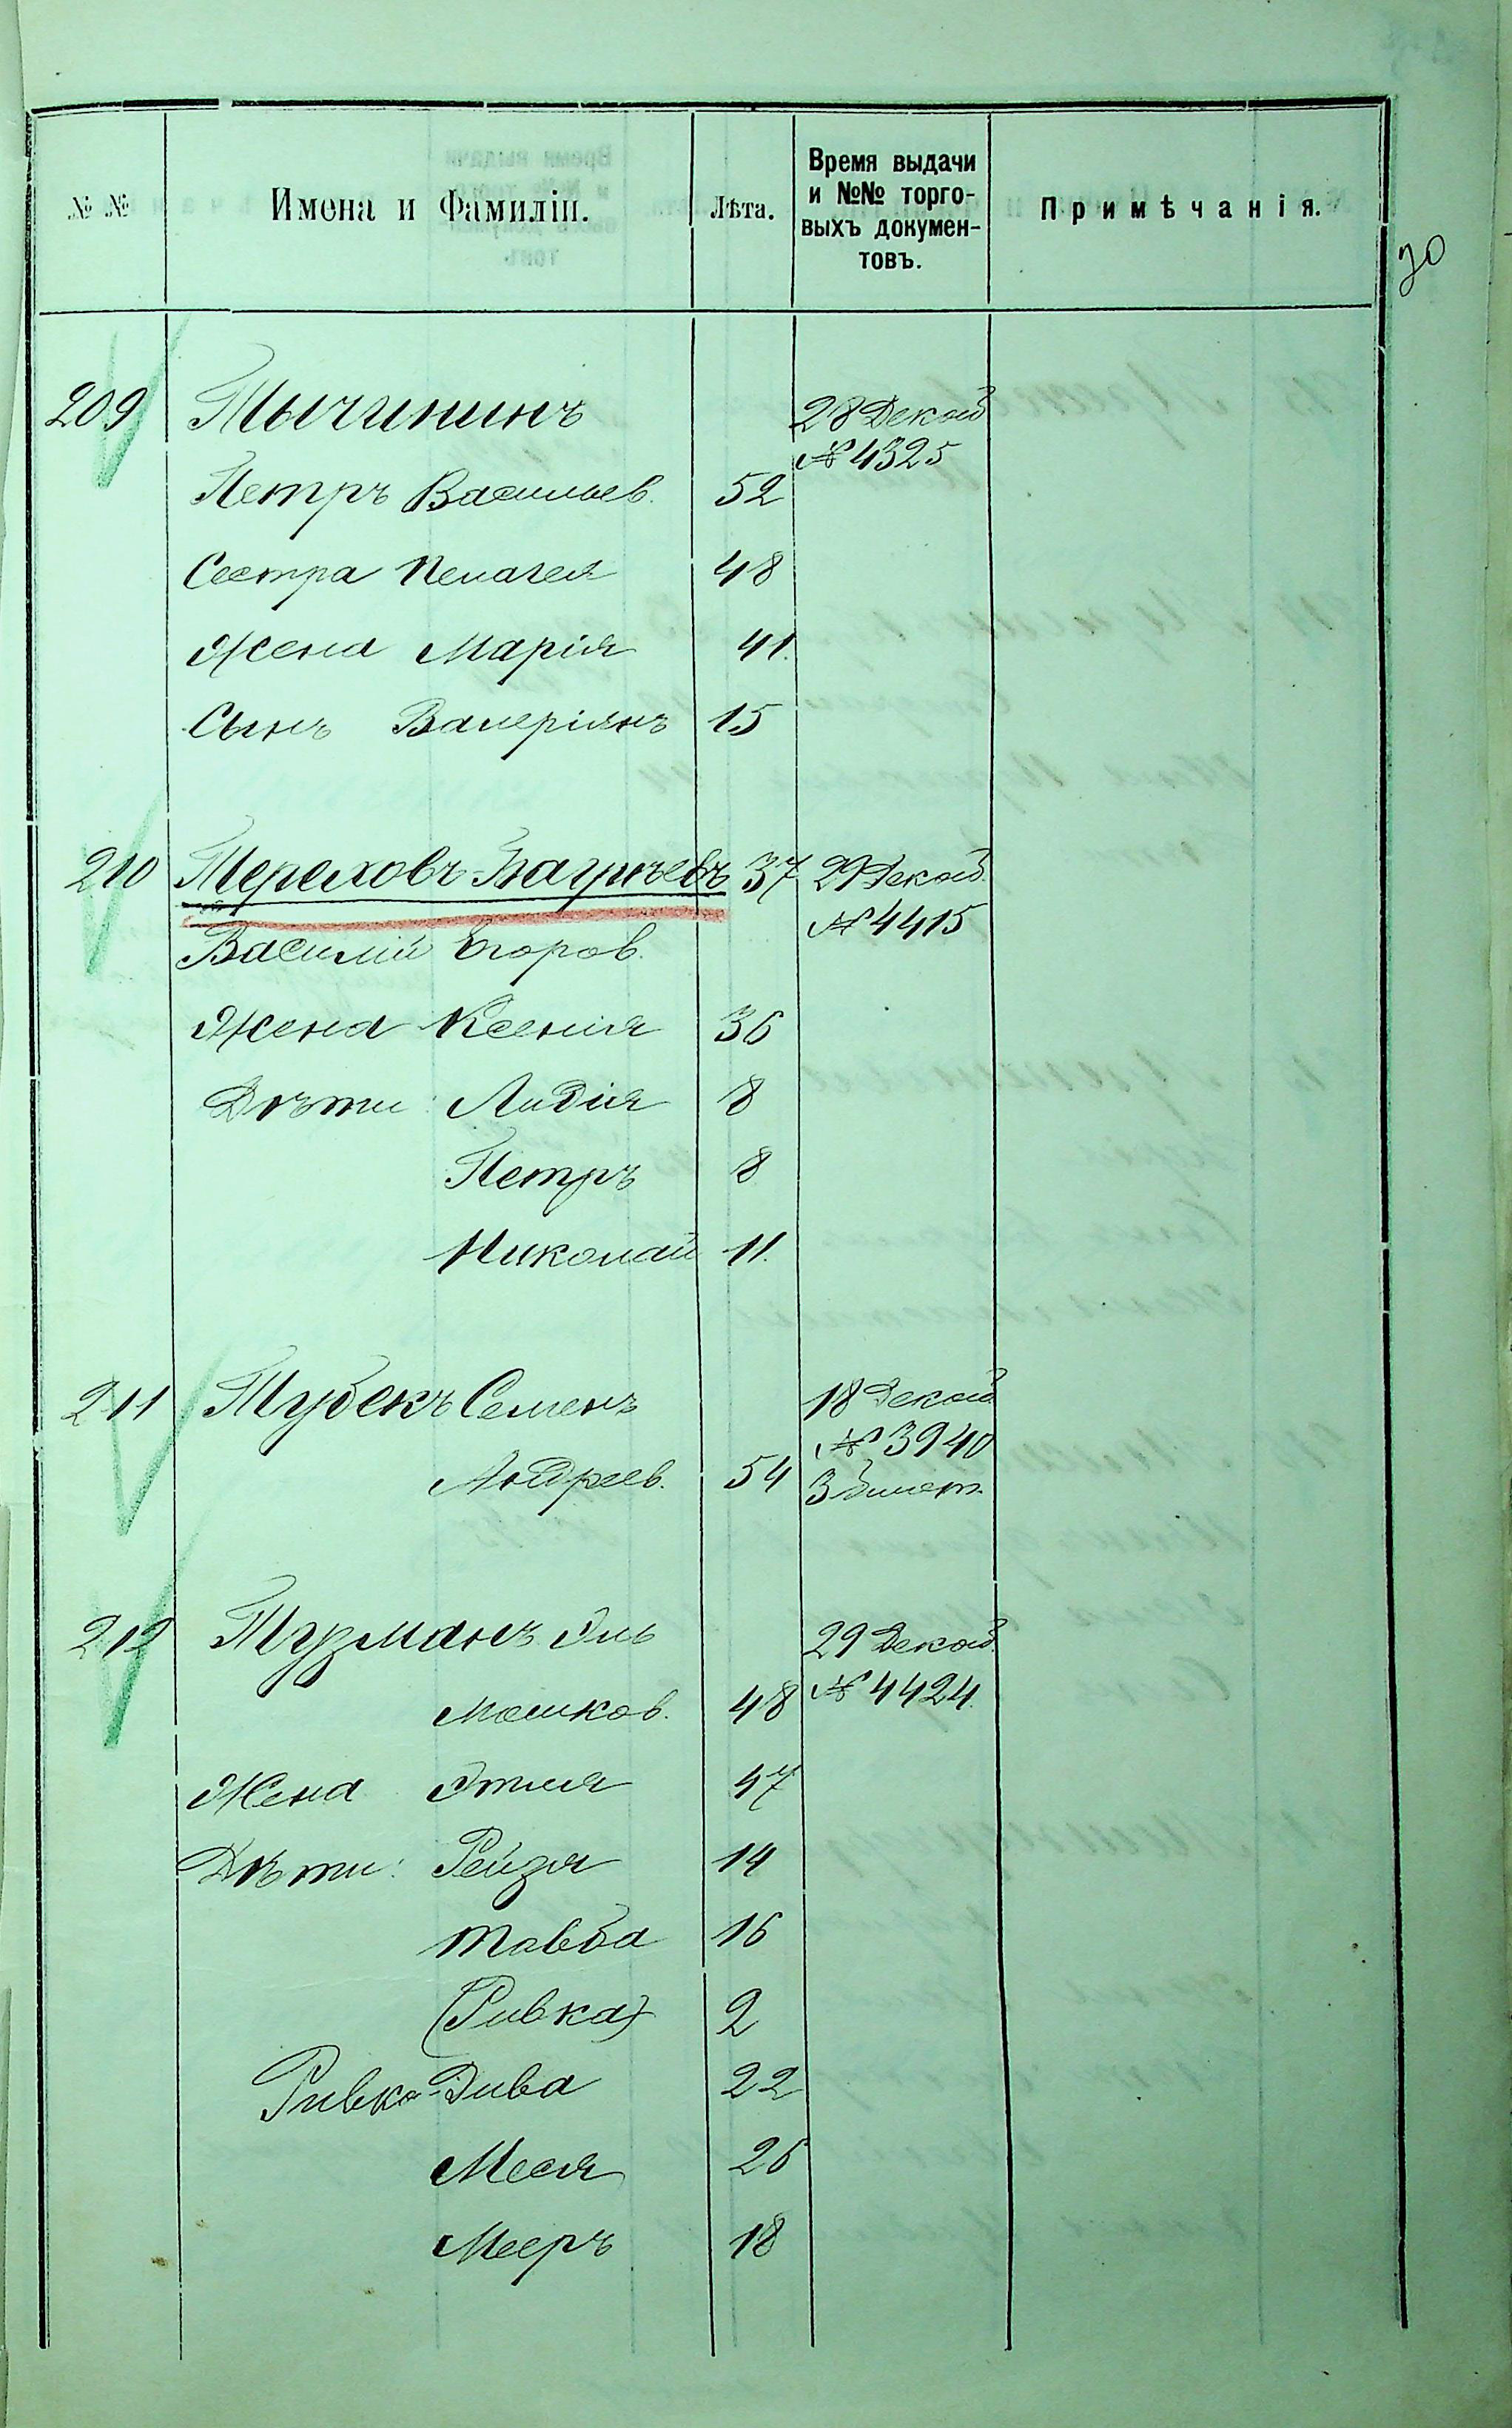 70
№№ Имена и Фамиліи. Лѣта. Время выдачи и №№ торговыхъ документовъ. Примѣчанія.
209 Тычининъ 28 Декаб
№ 4325
Петръ Васильев. 52
Сестра Пелагея 48
Жена Марія 41.
Сынъ Валеріянъ 15
210 Тереховъ-Багрѣевъ 37 29 Декаб.
№ 4415
Василій Егоров.
Жена Ксенія 36
Дѣти: Лидія 8
Петръ 8
Николай 11.
211 Тубекъ Семенъ 18 Декаб.
№ 3940
Андреев. 54 3 билет.
212 Тузманъ Эль 29 Декаб.
Мошков. 48 № 4424.
Жена Этля 47
Дѣти: Рейзя 14
Товба 16
(Ривка) 2
Ривка-Дива 22
Меся 26
Мееръ 18